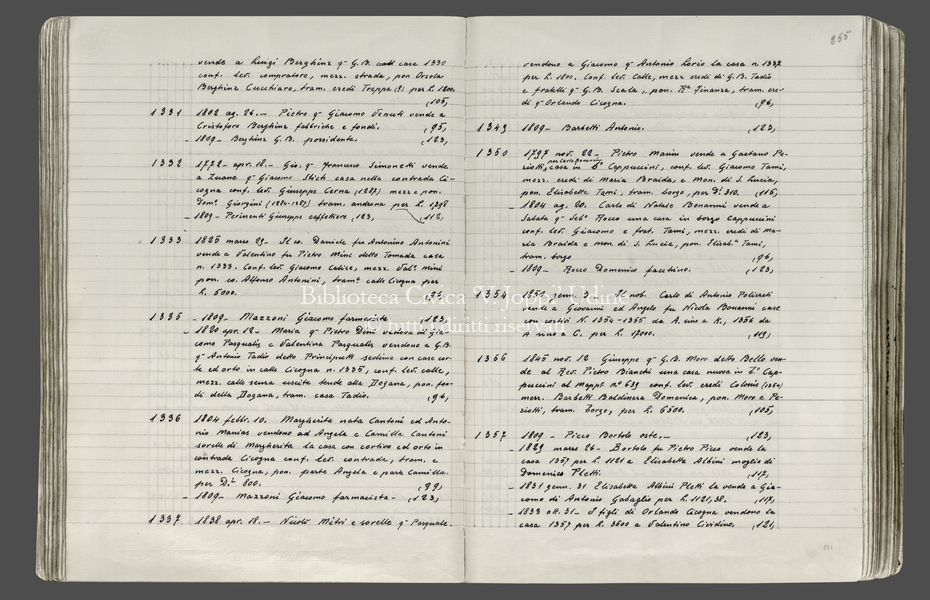 vende a Luigi Berghinz q.m G.B. case 1330
conf. lev. compratore, mezz. strada, pon Orsola
Berghinz Cucchiaro, tram. eredi Treppo (?) per L. 1200.
,105,
1331 1802 ag. 26. — Pietro q.m Giacomo Venuti vende a
Cristoforo Berghinz fabbriche e fondi. ,95,
- 1809 - Berghinz G.B. possidente. ,123,
1332 1772 - apr. 18. - Gio. q.m Francesco Simonetti vende
a Zuane q.m Giacomo casa nella contrada Ci-
cogna conf. lev. Giuseppe Cerna (1287) mezz e pon.
Dom.o Giorgini tram. androna per L. 1298
- 1809 - Giuseppe caffettiere ,123, ,112,
1333 1825 marzo 29 - Il co. Daniele fu Antonino Antonini
vende a Valentino fu Pietro Mini detto Tomada casa
n. 1333. Conf. lev. Giacomo Calice, mezz. Val.o Mini
pon. co. Alfonso Antonini, tram.a calle Cicogna per
L. 5000. ,96,
1335 - 1809 - Mazzoni Giacomo farmacista ,123,
- 1820 apr. 12 - Maria q.m Pietro Dini vedova di Gia-
como Pasqualis e Valentina Pasqualis vendono a G.B.
q.m Antonio Tadio detto Principutti sedime con case cor-
te ed orto in calle Cicogna n. 1335, conf. lev. calle,
mezz. calle senza uscita tende alla Dogana, pon. fon-
di della Dogana, tram. casa Tadio. ,96,
1336 1804 febbr. 10. Margherita nata Cantoni ed Anto-
nio Manias vendono ad Angela e Camilla Cantoni
sorelle di Margherita la casa con cortivo ed orto in
contrada Cicogna conf. lev. contrada, tram. e
mezz. Cicogna, pon. parte Angela e parte Camilla.
per D.ti 800. ,99,
- 1809 - Mazzoni Giacomo farmacista - ,123,
1337 1838 apr. 18. - Nicolò Mitri e sorelle q.m Pasquale
855
vendono a Giacomo q.m Antonio Lorio la casa n. 1337
per L. 1800. Conf. lev. Calle, mezz eredi di G.B. Tadio
e fratelli q.m G.B. Scala, pon. R.a Finanza, tram. ere-
di q.m Orlando Cicogna. ,96,
1349 1809 - Barbetti Antonio. ,123,
1350 1797 nov. 22 - Pietro Marin vende a Gaetano Pe-
riotti casa in b.o Cappuccini, conf. lev. Giacomo Tami,
mezz. eredi di Maria Braida, e Mon. di S. Lucia,
pon. Elisabetta Tami, tram. borgo, per D.ti 310. ,116,
- 1804 ag. 20. Carlo di Natale Bonanni vende a
Sabata q.m Seb.o Rocco una casa in borgo Cappuccini
conf. lev. Giacomo e frat. Tami, mezz. eredi di Ma-
ria Braida e mon di S. Lucia, pon. Elisab.a Tami,
tram. borgo ,96,
- 1809 - Rocco Domenico facchino. ,123,
1354 1850 genn. 3 - Il nob. Carlo di Antonio Policreti
vende a Giovanni ed Angelo fu Nicola Bonanni case
con cortivi N. 1354-1355 da A. sino a K., 1356 da
A sino a C. per L. 17000. ,119,
1356 1845 nov. 12 Giuseppe q.m G.B. Moro detto Bello ven-
de al Rev. Pietro Bianchi una casa nuova in b.o Cap-
puccini al mapp.e n.o 639 conf. lev. eredi Colonis (1354)
mezz. Barbetti Baldissera Domenica, pon. Moro e Pe-
riotti, tram. borgo, per L. 6500. ,105,
1357 1809 - Picco Bortolo oste. — ,123,
- 1829 marzo 26 - Bortolo fu Pietro Picco vende la
casa 1357 per L. 1121 a Elisabetta Albini moglie di
Domenico Pletti. ,117,
- 1831 genn. 31 Elisabetta Albini Pletti la vende a Gia-
como di Antonio Gabaglio per L. 1121,38. ,117,
- 1833 ott. 31 - I figli di Orlando Cicogna vendono la
casa 1357 per L. 3600 a Valentino Cividino. ,121,
Biblioteca Civica V. Joppi Udine
© tutti i diritti riservati